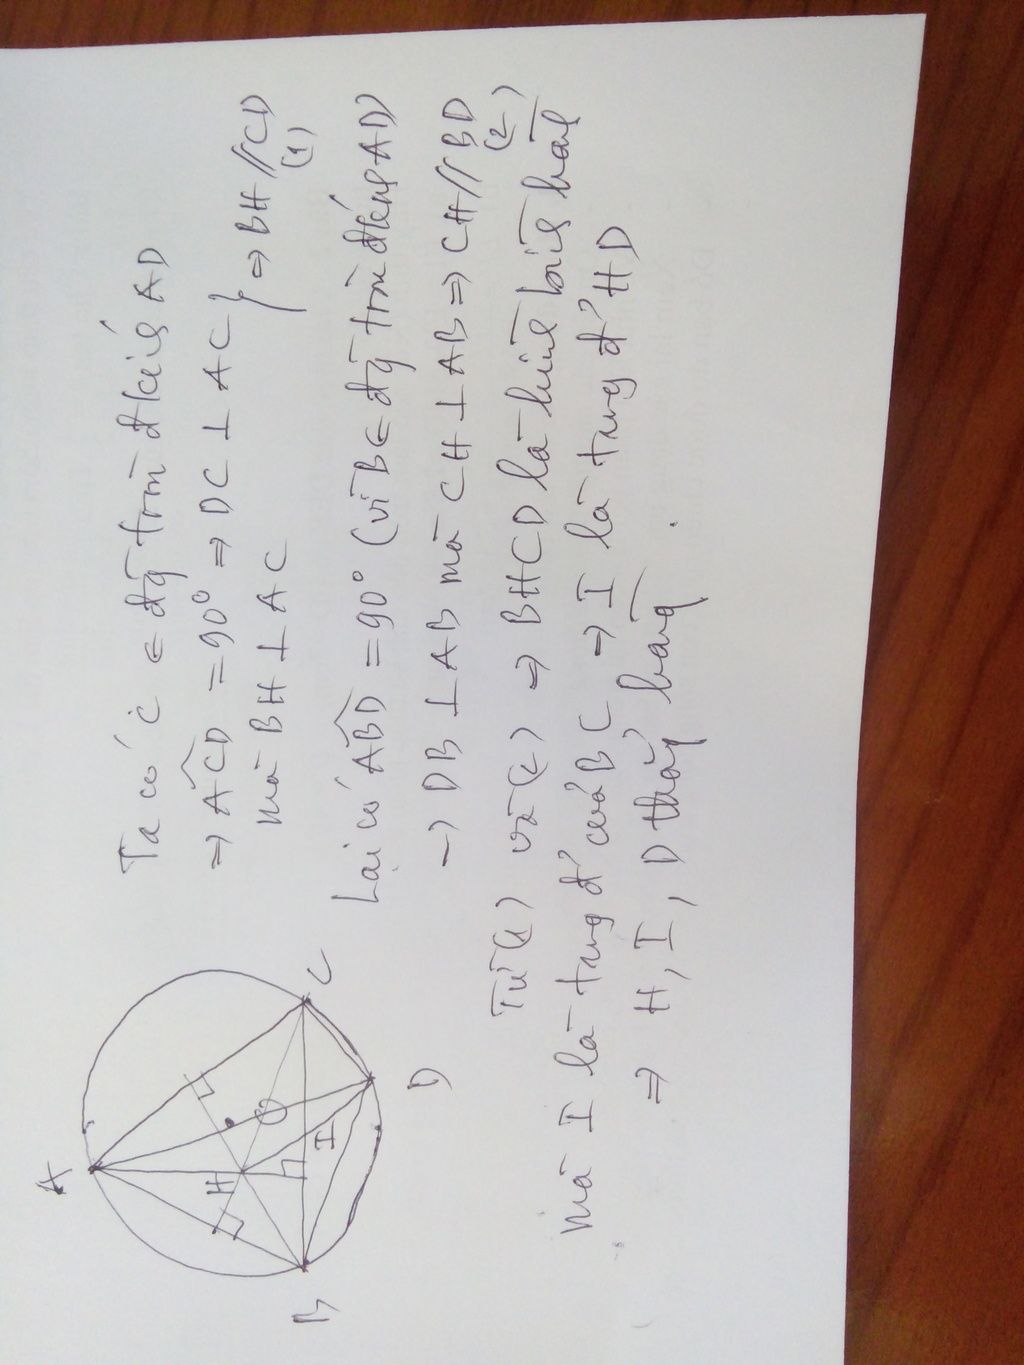 Ta có C ∈ đg tròn đkính AD
=> ACD = 90° => DC ⊥ AC
mà BH ⊥ AC
} => BH // CD
(1)
Lại có ABD = 90° (vì B ∈ đg tròn đkính AD)
-> DB ⊥ AB mà CH ⊥ AB => CH // BD
(2)
Từ (1) và (2) => BHCD là hình bình hành
mà I là trung đ' của BC -> I là trung đ' HD
=> H, I, D thẳng hàng.
A
B
C
D
H
O
I